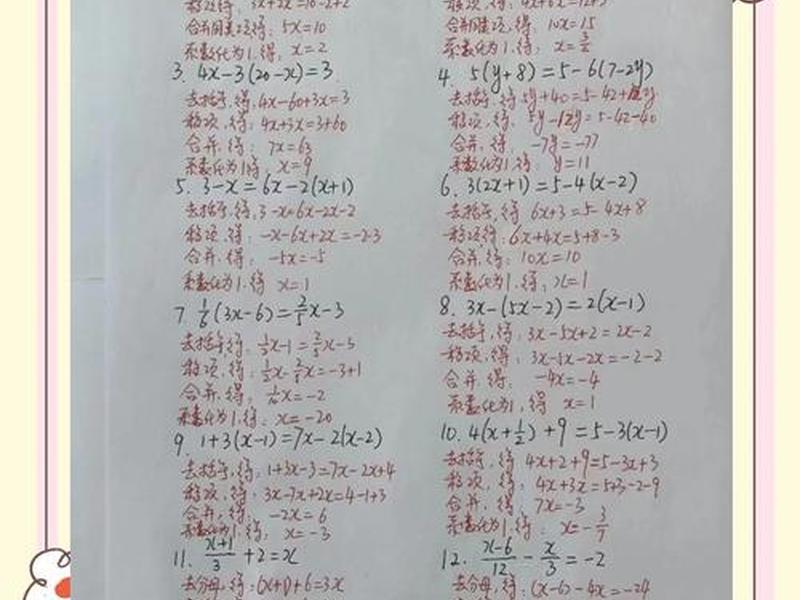 移项得: 3x+2x=10-2+2
合并同类项,得: 5x=10
系数化为1,得: x=2
3. 4x-3(20-x)=3
去括号,得: 4x-60+3x=3
移项,得: 4x+3x=3+60
合并,得: 7x=63
系数化为1得: x=9
5. 3-x=6x-2(x+1)
去括号,得: 3-x=6x-2x-2
移项,得: -x-6x+2x=-2-3
合并,得: -5x=-5
系数化为1.得 x=1
7. 1/6(3x-6)=2/5x-3
去括号得: 1/2x-1=2/5x-3
移项,得: 1/2x-2/5x=-3+1
合并,得, 1/10x=-2
系数化为1.得: x=-20
9. 1+3(x-1)=7x-2(x-2)
去括号,得: 1+3x-3=7x-2x+4
移项,得: 3x-7x+2x=4-1+3
合并,得: -2x=6
系数化为1.得, x=-3
11. (x+1)/3+2=x
去分母,得: (x+1)+6=3x
合并同类项,得, 10x=15
系数化为1.得: x=3/2
4. 5(y+8)=5-6(7-2y)
去括号,得 5y+40=5-42+12y
移项,得: 5y-12y=5-42-40
合并,得: -7y=-77
系数化为1.得: y=11
6. 3(2x+1)=5-4(x-2)
去括号,得 6x+3=5-4x+8
移项得: 6x+4x=5+8-3
合并,得: 10x=10
系数化为1.得, x=1
8. 3x-(5x-2)=2(x-1)
去括号,得: 3x-5x+2=2x-2
移项,得: 3x-5x-2x=-2-2
合并,得: -4x=-4
系数化为1,得 x=1
10. 4(x+1/2)+9=5-3(x-1)
去括号,得 4x+2+9=5-3x+3
移项,得: 4x+3x=5+3-2-9
合并,得: 7x=-3
系数化为1.得: x=-3/7
12. (x-6)/12-x/3=-2
去分母,得: (x-6)-4x=-24